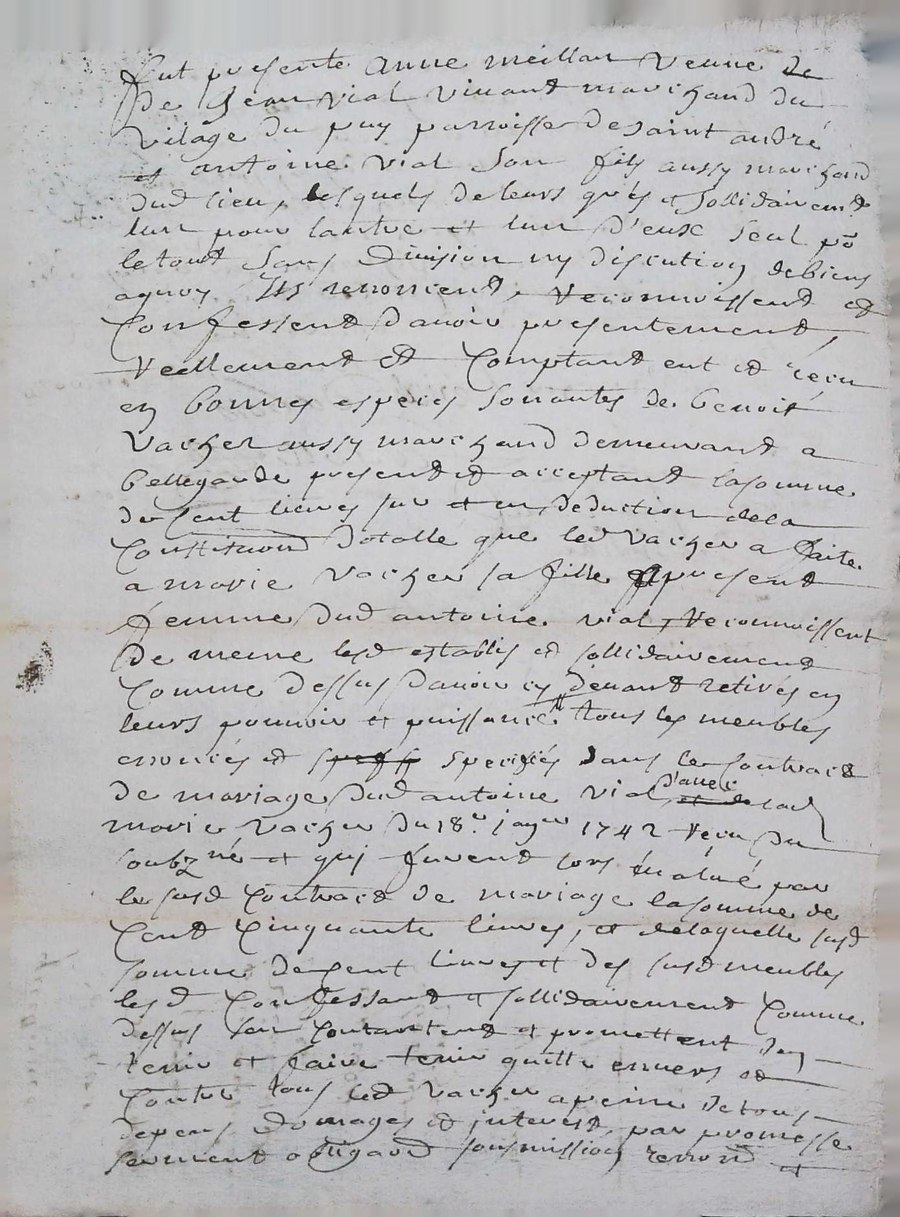 fut presente anne meillan veuve de
de Jean vial vivant marchand du
vilage du puy parroisse de saint andré
et antoine vial son fils aussy marchand
dud lieu, lesquels de leurs grés et sollidairemt
lun pour lautre et lun d'eux seul po
le tout sans division ny discution de biens
aquoy Ils renoncent, reconnoissent et
Confessent davoir presentement
reellement et Comptant eut et reçu
en bonnes especes sonantes de benoit
vacher aussy marchand demeurant a
bellegarde present et acceptant la somme
de cent livres sur et en deduction de la
Constitution dotalle que led vacher a faite
a marie vacher sa fille present
femme dud antoine vial, Reconnoissent
de meme lesd establis et sollidairement
Comme dessus davoir cy devant retirés en
leurs pouvoir et puissance tous les meubles
enonces et speciffiés dans le Contract
de mariage dud antoine vial d'avec lad
marie vacher du 18e janer 1742 recu du
soubzné et qui furent lors évalué par
le susd Contract de mariage la somme de
Cent Cinquante livres, et de laquelle susd
somme de cent livres et des susd meubles
lesd Confessant et sollidairement Comme
dessus sen Contantent et promettent den
tenir et faire tenir quitte envers et
Contre tous led vacher a peine de tous
depens domages et interest, par promesse
serment obligaon sousmission renond et